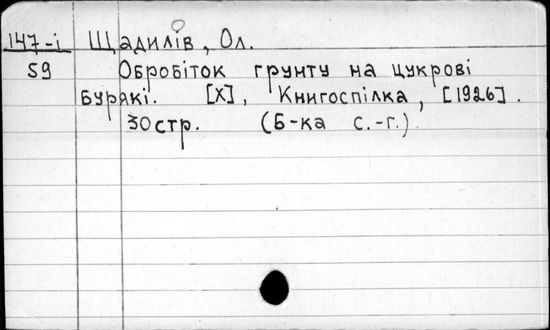 147-і Щадилів, Ол.
59 Обробіток грунту на цукрові
бурякі. [Х], Книгоспілка, [1926].
30 стр. (Б-ка с.-г.)